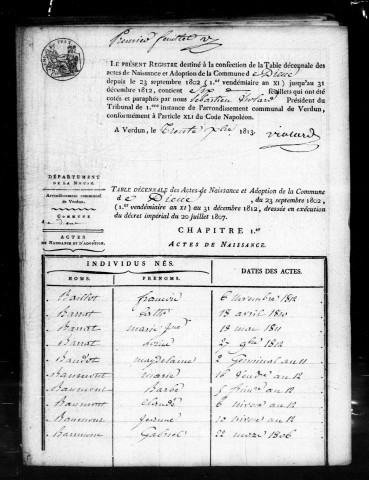 Premier feuillet
LE PRÉSENT REGISTRE destiné à la confection de la Table décennale des
actes de Naissance et Adoption de la Commune de Dieue
depuis le 23 septembre 1802 (1.er vendémiaire an XI) jusqu'au 31
décembre 1812, contient six feuillets qui ont été
cotés et paraphés par nous Sébastien Président du
Tribunal de 1.re instance de l'arrondissement communal de Verdun,
conformément à l'article XLI du Code Napoléon.
A Verdun, le trente 1813.
DÉPARTEMENT
DE LA MEUSE.
Arrondissement communal
de Verdun.
COMMUNE
de Dieue
ACTES
DE NAISSANCE ET D'ADOPTION.
TABLE DÉCENNALE des Actes de Naissance et Adoption de la Commune
de Dieue du 23 septembre 1802,
(1.er vendémiaire an XI) au 31 décembre 1812, dressée en exécution
du décret impérial du 20 juillet 1807.
CHAPITRE 1.er
ACTES DE NAISSANCE.
INDIVIDUS NÉS.
NOMS. PRÉNOMS. DATES DES ACTES.
6 novembre 1812
18 avril 1810
marie 18 mai 1811
27 9bre 1812
magdelaine 2 Germinal an 11
Baumont marie 16 an 12
Baumont Barbe 5 an 12
Baumont Claude 6 nivose an 12
Baumont jeanne 10 nivose an 12
Baumont Gabriel 22 mars 1806